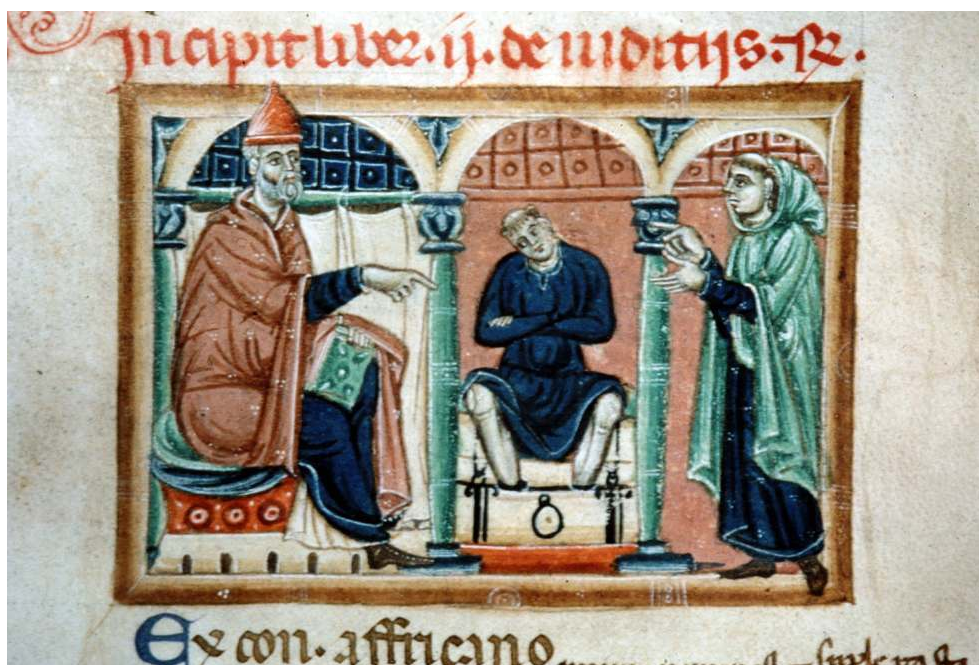 Incipit liber · ij · de iuditijs · R⁊ ·
Ex con · affricano